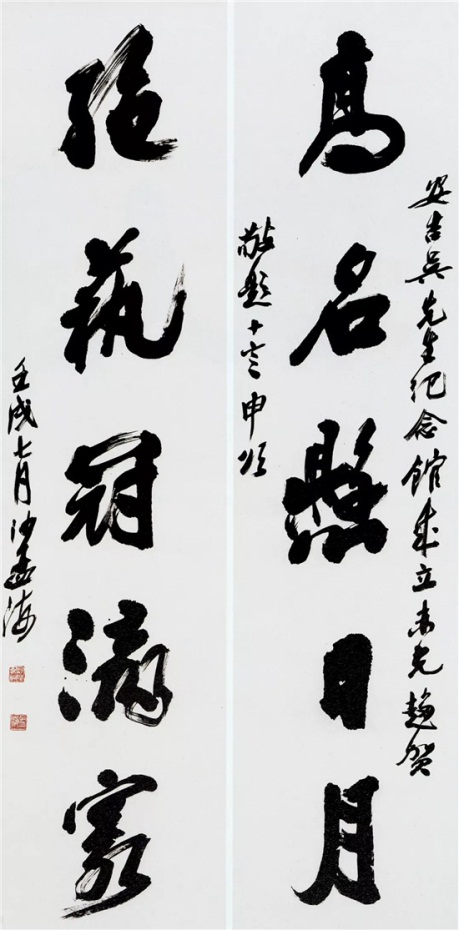 安吉吳先生紀念館成立未克趨賀
高名懸日月
敬題十言申頌
絕蓺冠瀛寰
壬戌七月沙孟海